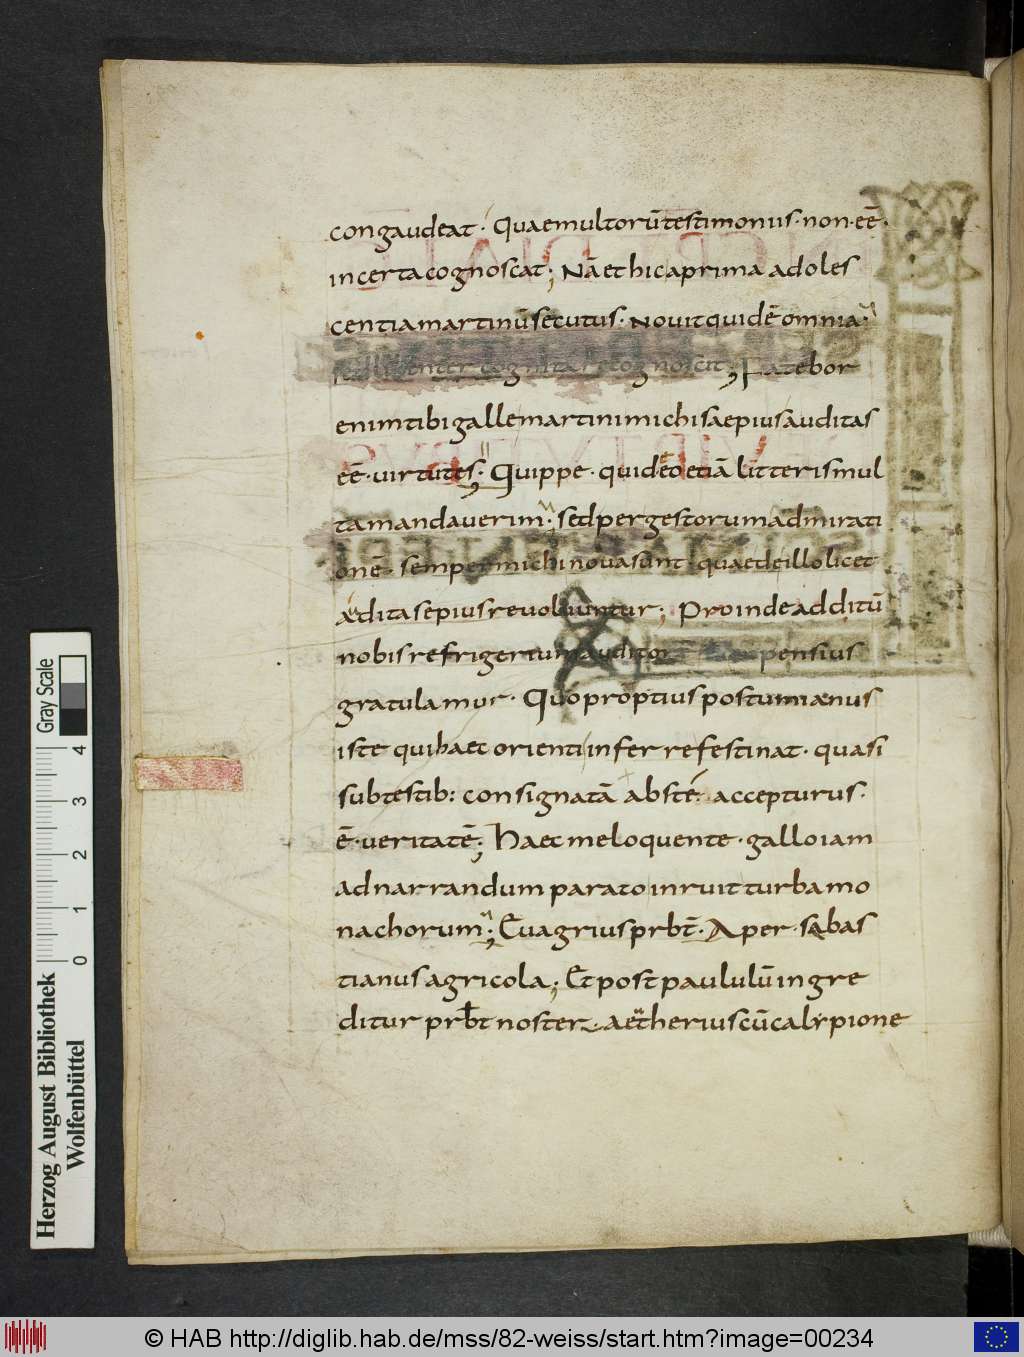 congaudeat · Quae multorū testimoniis · non · eē ·
incerta cognoscat ; Nā et hic a prima adoles
centia martinū secutus · Novit quidē omnia ·
sed libenter cognita recognoscit ; Fatebor
enim tibi galle martini michi saepius auditas
eē · virtutes ; Quippe · quidē eo etiā litteris mul
ta mandaverim · sed per gestorum admirati
onē · semper michi nova sunt · quae de illo licet
ædita sepius revolvuntur ; Proinde additū
nobis refrigerium auditor pensius
gratulamur · Quo proptius postumianus
iste qui haec orienti inferre festinat · quasi
sub testib: consignatā abs te · accepturus ·
ē · veritatē ; Haec me loquente · gallo iam
ad narrandum parato inruit turba mo
nachorum ; Evagrius prbt̄ · Aper · sabas
tianus agricola ; Et post paululū ingre
ditur prbt noster · aetherius cū calypione
Herzog August Bibliothek
Wolfenbüttel
Gray Scale
0 1 2 3 4
© HAB http://diglib.hab.de/mss/82-weiss/start.htm?image=00234